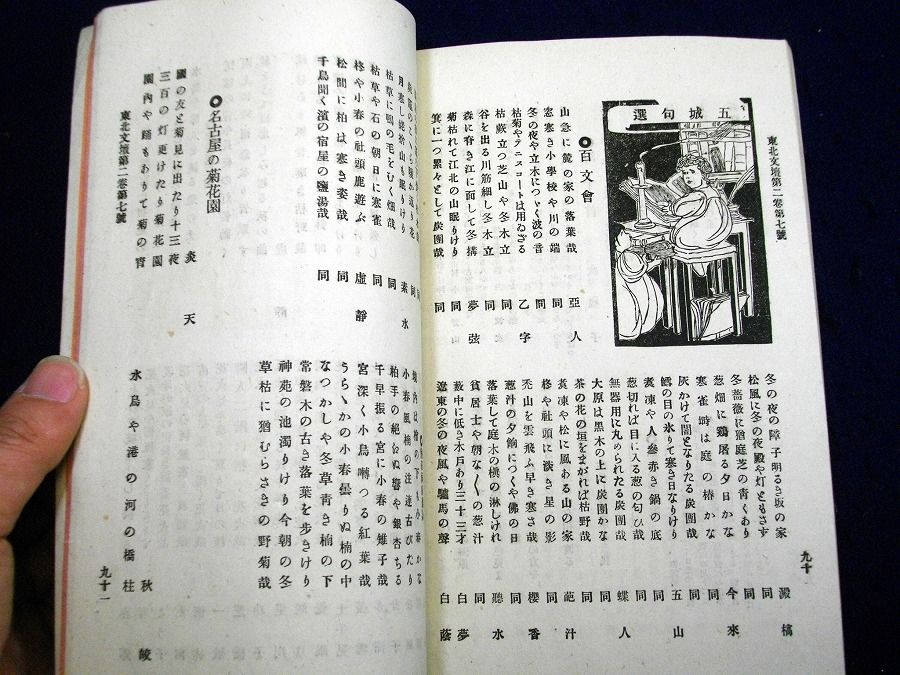 東北文壇第二卷第七號
五城句選
◎百文會
山急に麓の家の落葉哉 亞人
窓寒き小學校や川の端 同
冬の夜や立木につゞく波の音 同
枯菊やテニスコートは用ゐざる 乙字
枯蕨立つ芝山や冬木立 同
谷を出る川筋細し冬木立 同
森に脊き江に面して冬搆 夢弦
菊枯れて江北の山眠りけり 同
箕に一つ累々として炭團哉 同
冬の夜の障子明るき坂の家 澱橋
松風に冬の夜殿や灯ともさす 同
冬薔薇に猶庭芝の青くあり 同
葱畑に鷄屠る夕日かな 今來
寒雀時は庭の椿かな 同
灰かけて闇となりたる炭團哉 五山
鱈の目の氷りて寒き日なりけり 同
煮凍や人參赤き鍋の底 同
葱切れば目に入る葱の匂ひ哉 蝶人
無器用に丸められたる炭團哉 同
大原は黒木の上に炭團かな 同
茶の花の垣をまがれば枯野哉
煮凍や松に風ある山の家 葩汁
柊や社頭に淡き星の影 同
禿山を雲飛ぶ早き寒さ哉 櫻香
葱汁の夕餉につくや佛の日 同
落葉して庭木の槇の淋しけれ 聽水
貧居士や朝な〱の葱汁 同
藪中に低き木戸あり三十三才 白夢
遼東の冬の夜風や驢馬の聲 白蔭
九十
月寒し姥捨山も眠りけり 素水
枯草に鴫の毛をむく畑哉 同
枯草や石の朝日に寒雀 同
柊や小春の社頭鹿遊ぶ 虛靜
松間に柏は寒き姿哉 同
千鳥聞く濱の宿屋の鹽湯哉 同
小春風楠の注連古びたり
柏手の絶ゐぬ響や銀杏ちる
千早振る宮に小春の雉子哉
宮深く小鳥囀つる紅葉哉
うらゝかの小春曇りぬ楠の中
なつかしや冬草青き楠の下
常磐木の古き落葉を歩きけり
神苑の池濁りけり今朝の冬
草枯に猶むらさきの野菊哉
◎名古屋の菊花園
炎天
國の友と菊見に出たり十三夜
三百の灯更けたり菊花園
園内や踊もありて菊の宵
秋皎
水鳥や港の河の橋柱
東北文壇第二卷第七號
九十一